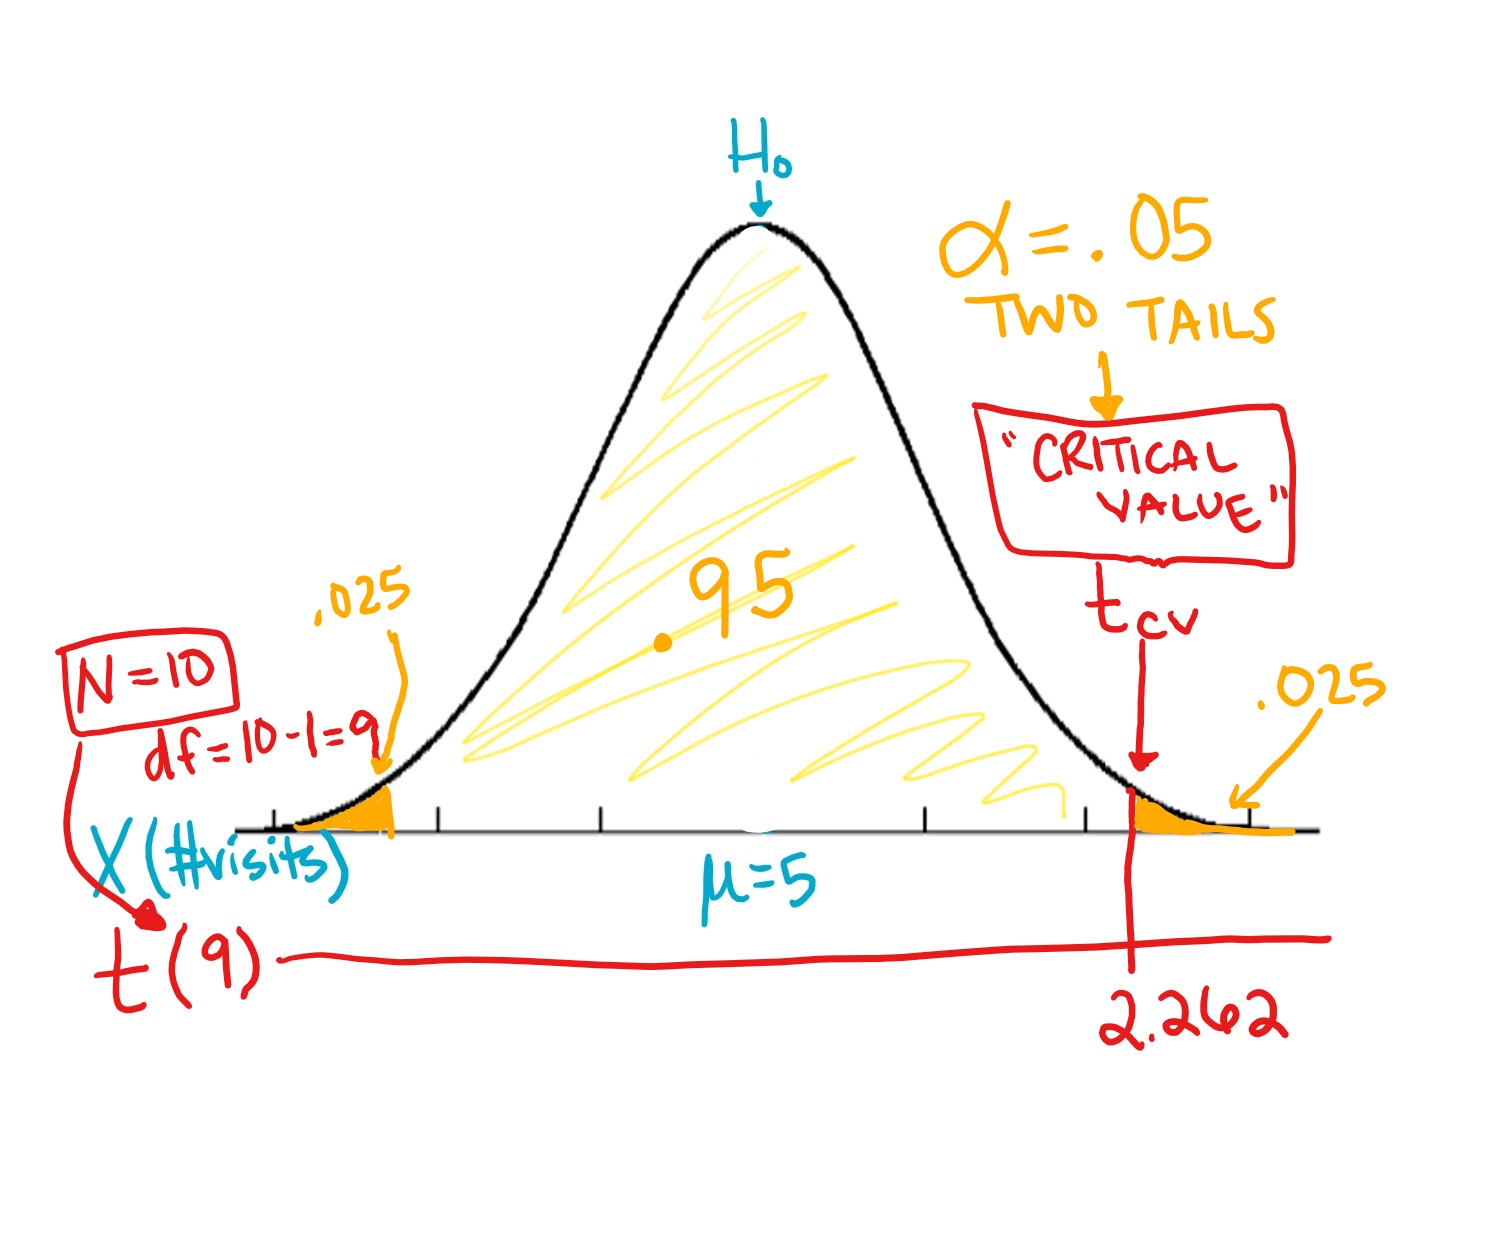 H₀
α = .05
TWO TAILS
"CRITICAL
VALUE"
.95
.025
tcv
N=10
.025
df=10-1=9
X(#visits)
μ=5
t(9)
2.262